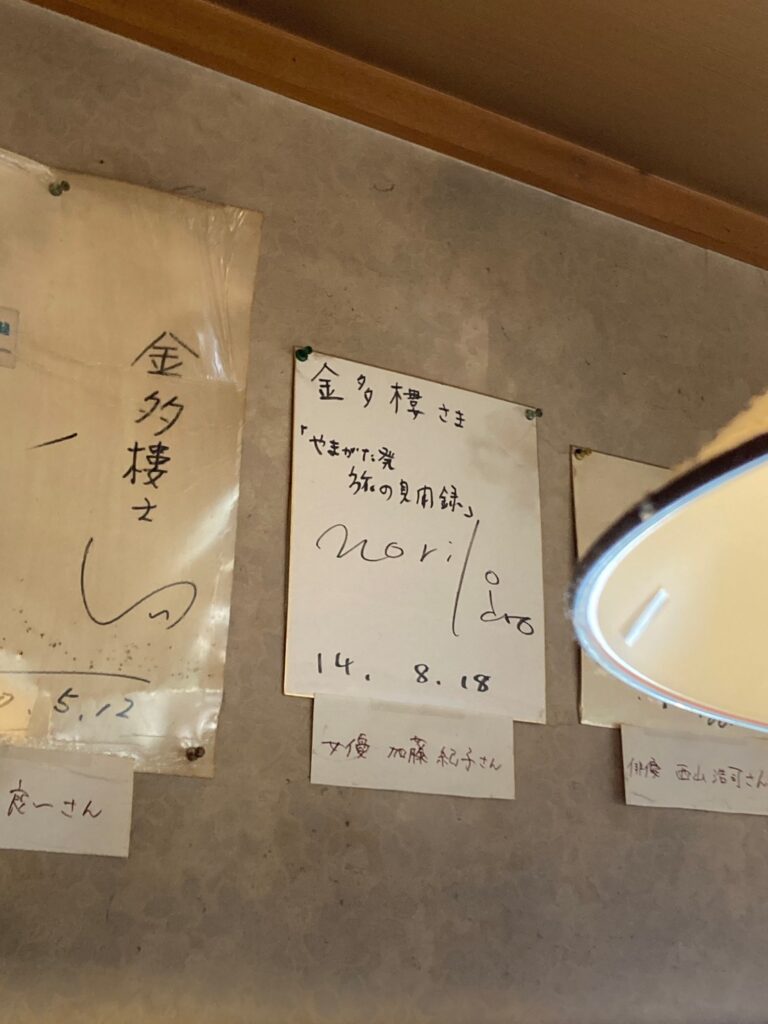 金多楼
5.12
良一さん
金多楼さま
「やまがた発
旅の見聞録」
nori
14. 8.18
女優 加藤紀子さん
俳優 西山浩司さん